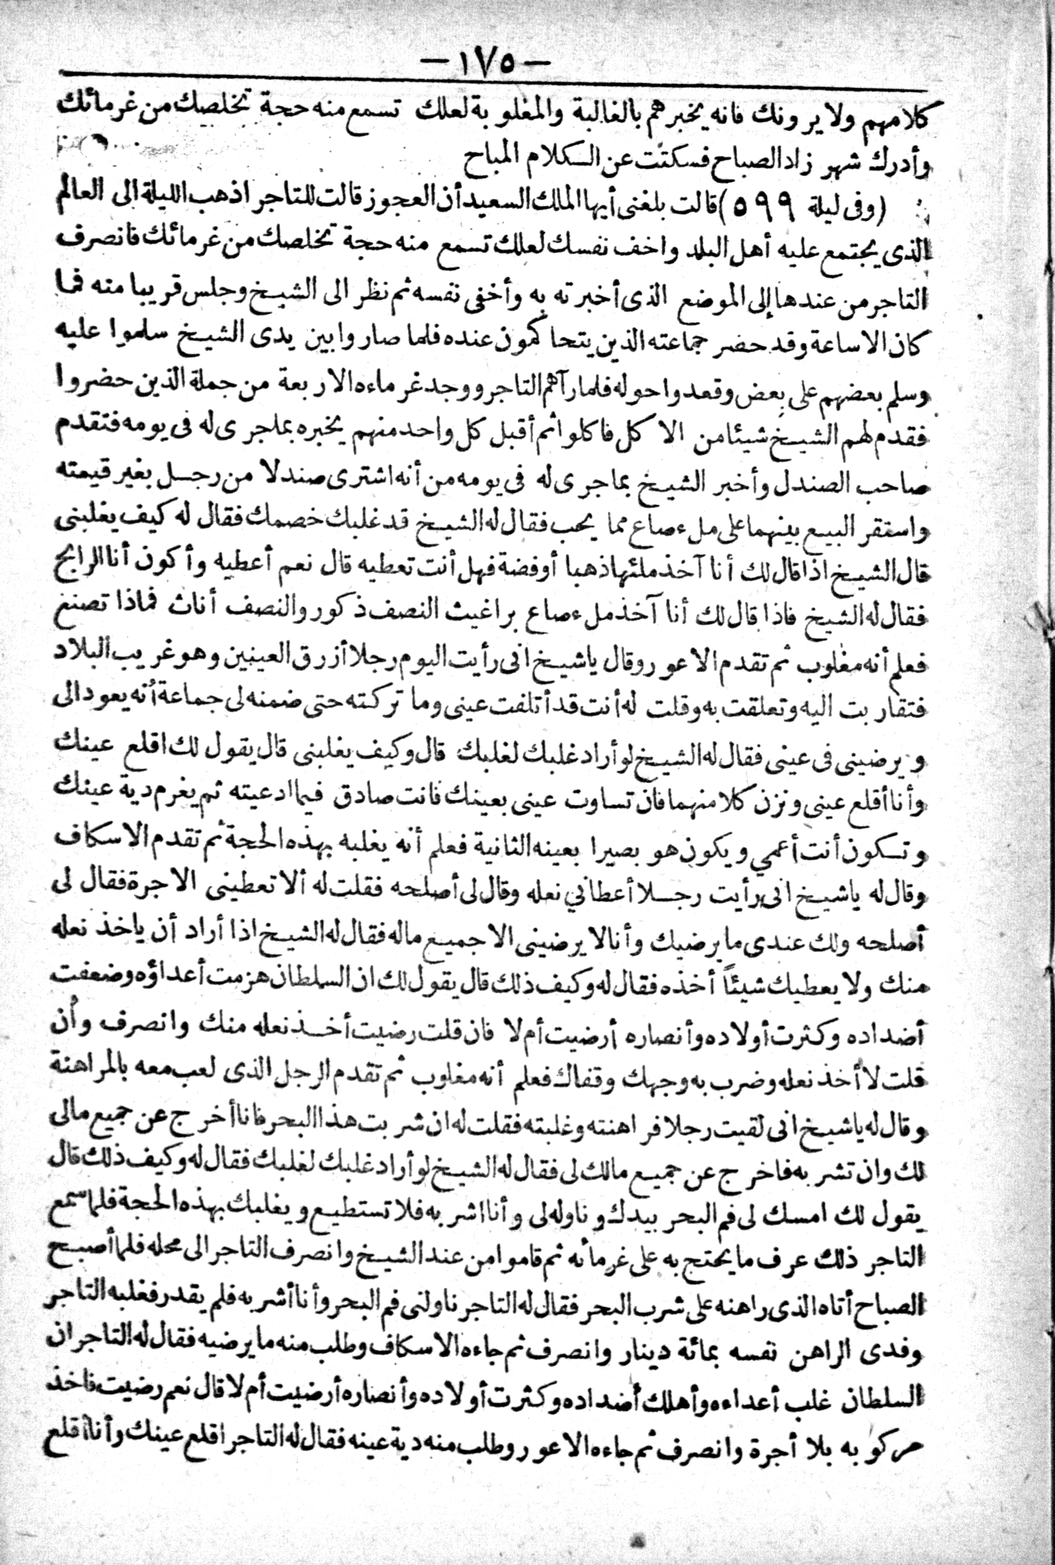 — ١٧٥ —
كلامهم ولا يرونك فانه يخبرهم بالغالبة والمغلوبة لعلك تسمع منه حجة تخلصك من غرمائك
وأدرك شهر زاد الصباح فسكتت عن الكلام المباح
(وفى ليلة ٥٩٩) قالت بلغنى أيها الملك السعيد أن العجوز قالت للتاجر اذهب الليلة الى العالم
الذى يجتمع عليه أهل البلد واخف نفسك لعلك تسمع منه حجة تخلصك من غرمائك فانصرف
التاجر من عندها إلى الموضع الذى أخبرته به وأخفى نفسه ثم نظر الى الشيخ وجلس قريبا منه فما
كان الا ساعة وقد حضر جماعته الذين يتحاكمون عنده فلما صاروا بين يدى الشيخ سلموا عليه
وسلم بعضهم على بعض وقعدوا حوله فلما رآهم التاجر ووجد غرماءه الاربعة من جملة الذين حضروا
فقدم لهم الشيخ شيئا من الا كل فاكلوا ثم أقبل كل واحد منهم يخبره بما جرى له فى يومه فتقدم
صاحب الصندل وأخبر الشيخ بما جرى له فى يومه من أنه اشترى صندلا من رجل بغير قيمته
واستقر البيع بينهما على ملء صاع مما يحب فقال له الشيخ قد غلبك خصمك فقال له كيف يغلبنى
قال الشيخ اذا قال لك أنا آخذ ملئها ذهبا أو فضة فهل أنت تعطيه قال نعم أعطيه وأكون أنا الرابح
فقال له الشيخ فاذا قال لك أنا آخذ ملء صاع براغيث النصف ذكور والنصف أناث فماذا تصنع
فعلم أنه مغلوب ثم تقدم الاعور وقال ياشيخ انى رأيت اليوم رجلا أزرق العينين وهو غريب البلاد
فتقاربت اليه وتعلقت به وقلت له أنت قد أتلفت عينى وما تركته حتى ضمنه لى جماعة أنه يعود الى
ويرضينى فى عينى فقال له الشيخ لو أراد غلبك لغلبك قال وكيف يغلبنى قال يقول لك اقلع عينك
وأنا أقلع عينى ونزن كلا منهما فان تساوت عينى بعينك فانت صادق فيما ادعيته ثم يغرم دية عينك
وتكون أنت أعمي ويكون هو بصيرا بعينه الثانية فعلم أنه يغلبه بهذه الحجة ثم تقدم الاسكاف
وقال له ياشيخ انى رأيت رجلا أعطاني نعله وقال لى أصلحه فقلت له ألا تعطينى الاجرة فقال لى
أصلحه ولك عندى ما يرضيك وأنا لا يرضينى الا جميع ماله فقال له الشيخ اذا أراد أن ياخذ نعله
منك ولا يعطيك شيئاً أخذه فقال له وكيف ذلك قال يقول لك ان السلطان هزمت أعداؤه وضعفت
أضداده وكثرت أولاده وأنصاره أرضيت أم لا فان قلت رضيت أخذ نعله منك وانصرف وأن
قلت لا أخذ نعله وضرب به وجهك وقفاك فعلم أنه مغلوب ثم تقدم الرجل الذى لعب معه بالمراهنة
وقال له ياشيخ انى لقيت رجلا فراهنته وغلبته فقلت له ان شربت هذا البحر فانا أخرج عن جميع مالى
لك وان تشربه فاخرج عن جميع مالك لى فقال له الشيخ لو أراد غلبك لغلبك فقال له وكيف ذلك قال
يقول لك امسك لى فم البحر بيدك وناوله لى وأنا اشربه فلا تستطيع ويغلبك بهذه الحجة فلما سمع
التاجر ذلك عرف ما يحتج به على غرمائه ثم قاموا من عند الشيخ وانصرف التاجر الى محله فلما أصبح
الصباح أتاه الذى راهنه على شرب البحر فقال له التاجر ناولنى فم البحر وأنا أشربه فلم يقدر فغلبه التاجر
وفدى الراهن نفسه بمائة دينار وانصرف ثم جاءه الاسكاف وطلب منه ما يرضيه فقال له التاجر ان
السلطان غلب أعداءه وأهلك أضداده وكثرت أولاده وأنصاره أرضيت أم لا قال نعم رضيت فاخذ
مركوبه بلا أجرة وانصرف ثم جاءه الاعور وطلب منه دية عينه فقال له التاجر اقلع عينك وأنا أقلع